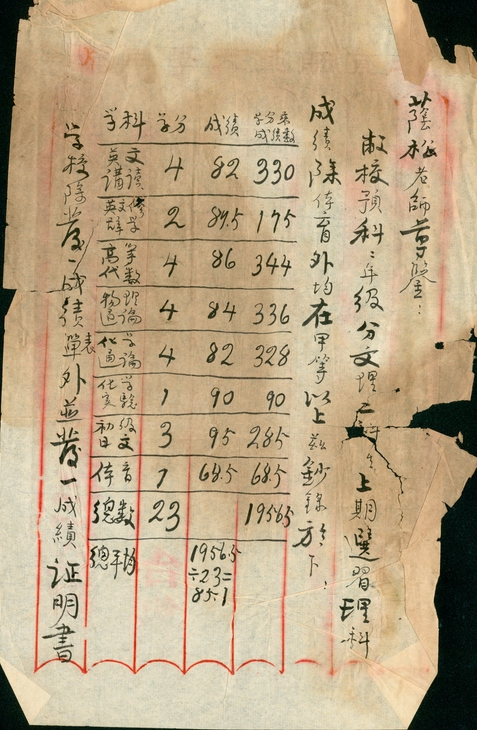 蔭松老師尊鑒：
敝校預科二年級分文理二科生上期選習理科
成績除体育外均在甲等以上茲鈔錄於下：
学科 学分 成绩 学分乘成绩数
英文講讀 4 82 330
英文修辞学 2 87.5 175
高等代数 4 86 344
物理通論 4 84 336
化学通論 4 82 328
化学实驗 1 90 90
初级日文 3 95 285
体育 1 68.5 68.5
總数 23 1956.5
總平均 1956.5÷23=85.1
学校除發一成绩單表外並發一成績証明書